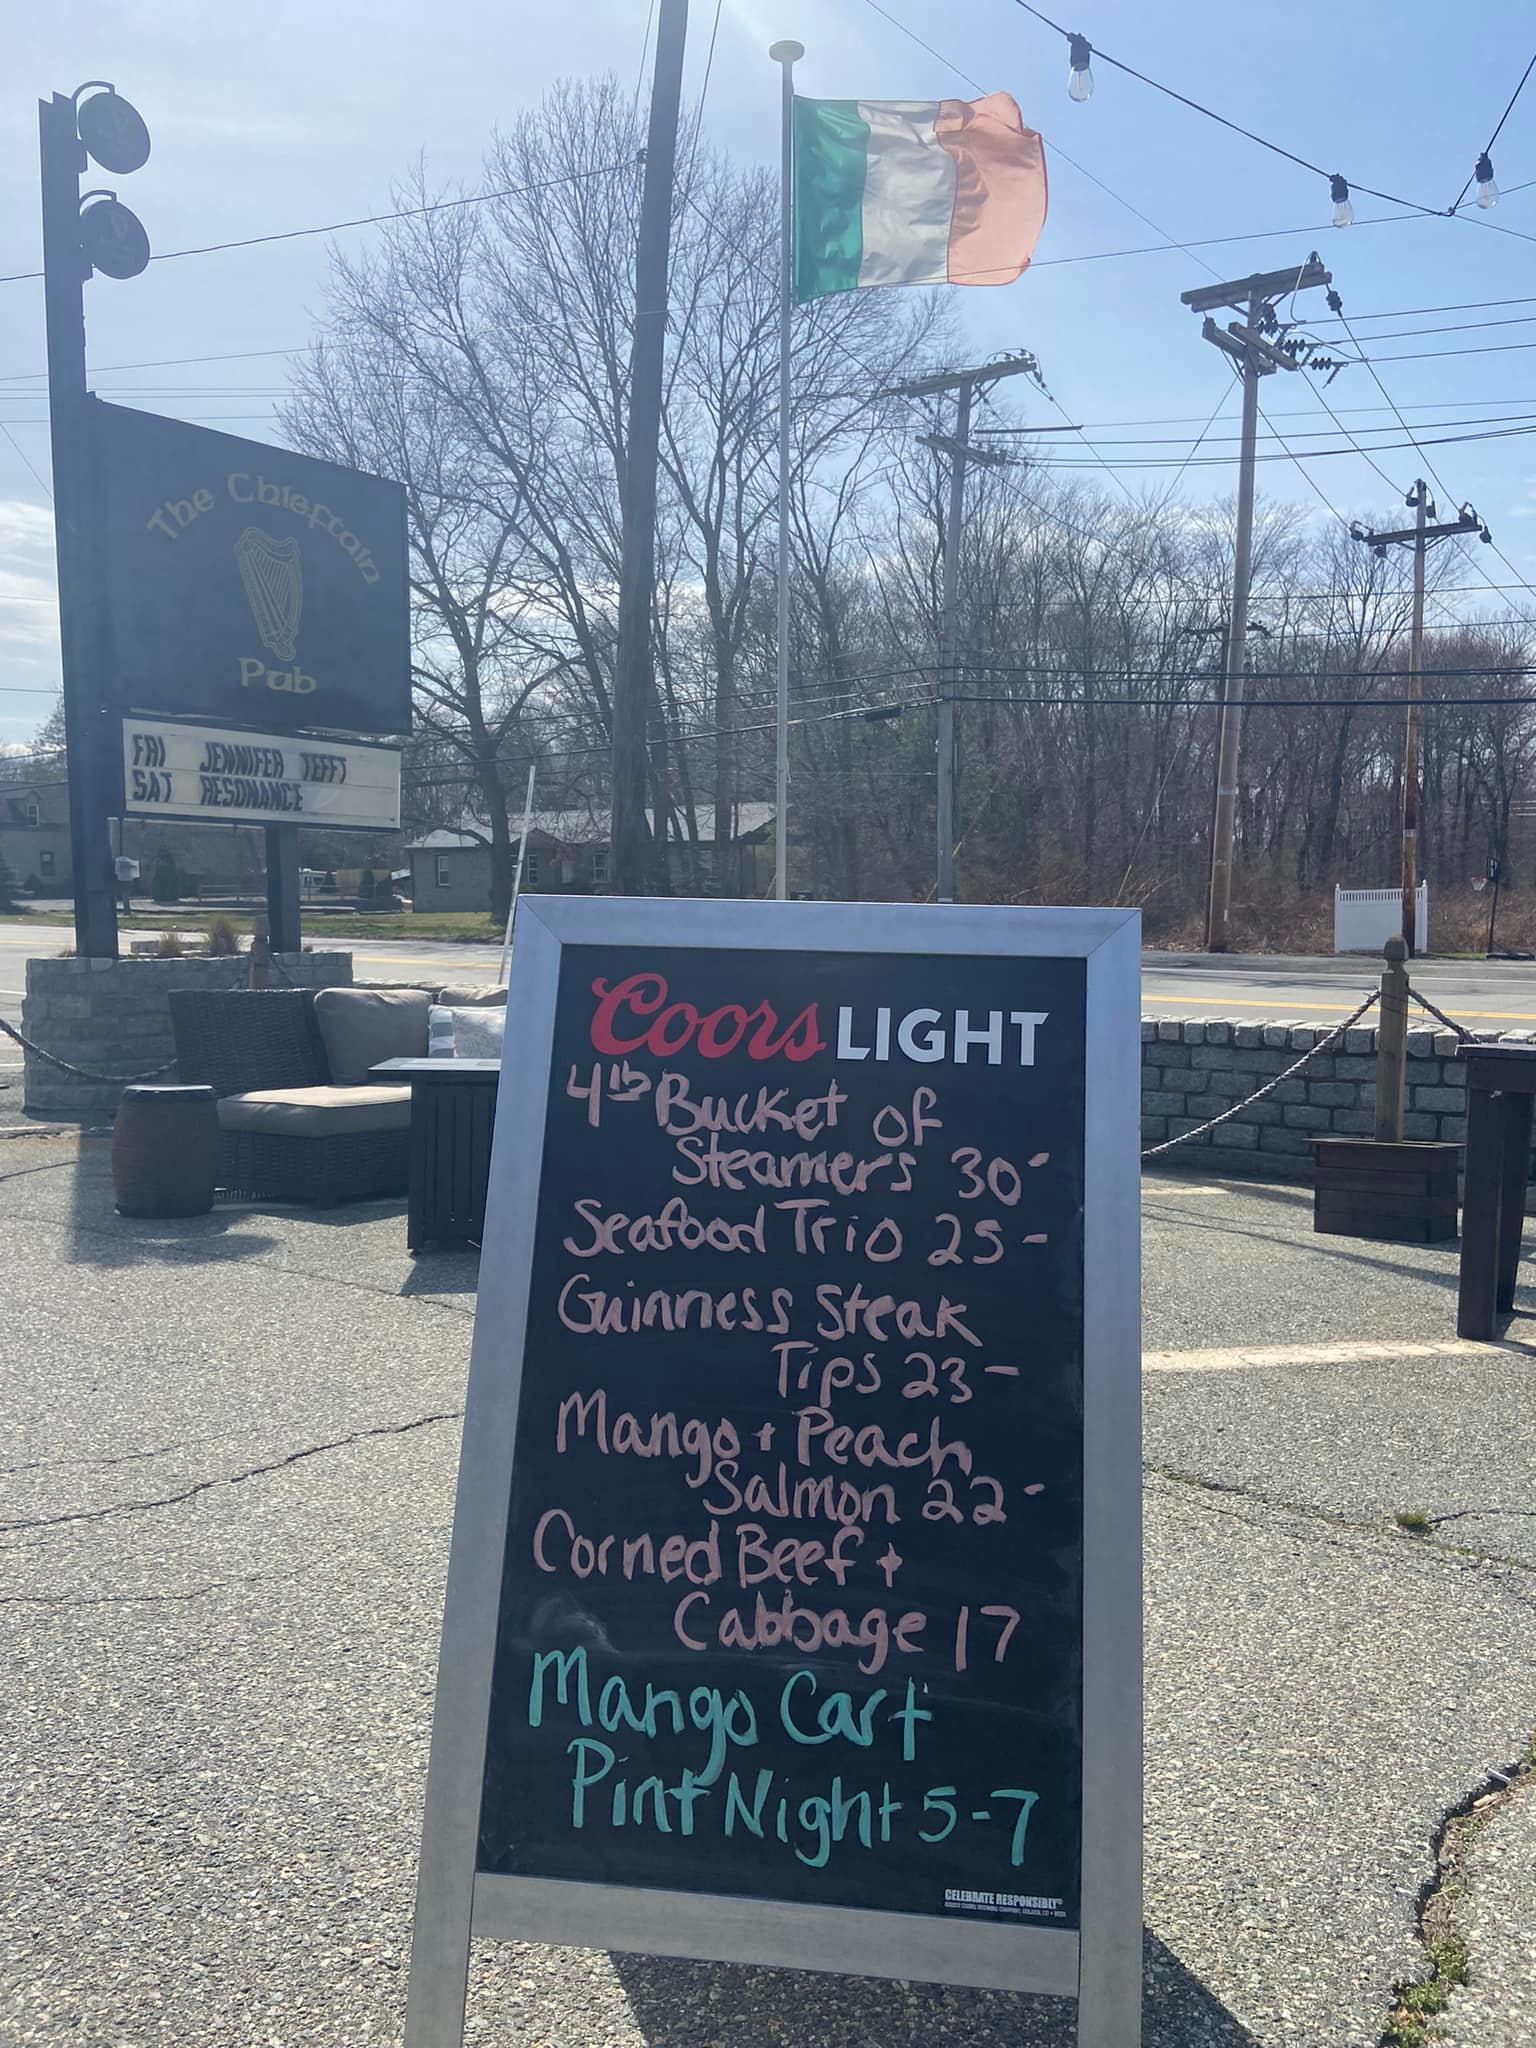 The Chieftain
Pub
FRI JENNIFER TEFFT
SAT RESONANCE
Coors LIGHT
4lb Bucket of
Steamers 30-
Seafood Trio 25-
Guinness Steak
Tips 23-
Mango + Peach
Salmon 22-
Corned Beef +
Cabbage 17
Mango Cart
Pint Night 5-7
CELEBRATE RESPONSIBLY®